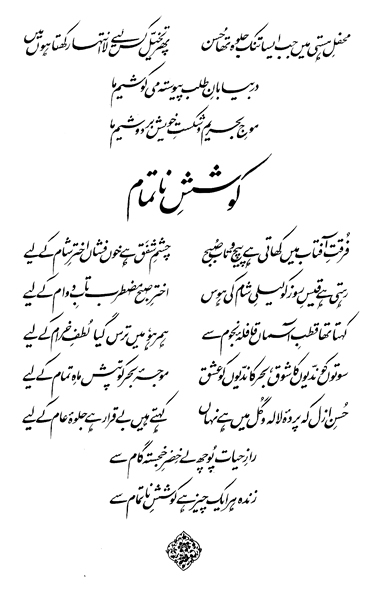 محفلِ ہستی میں جب ایسا تنک جلوہ تھا حسن پھر تخیل کس لیے لا انتہا رکھتا ہوں میں
در بیابانِ طلب پیوستہ می کوشیم ما
موجِ بحریم و شکستِ خویش بر دوشیم ما
کوششِ ناتمام
فُرقتِ آفتاب میں کھاتی ہے پیچ و تاب صبح چشمِ شفق ہے خوں فشاں اخترِ شام کے لیے
رہتی ہے قیسِ روز کو لیلیِ شام کی ہوس اخترِ صبح مضطرب تابِ دوام کے لیے
کہتا تھا قطبِ آسماں قافلۂ نجوم سے ہمرہو، میں ترس گیا لطفِ خرام کے لیے
سوتوں کو ندیوں کا شوق، بحر کا ندیوں کو عشق موجۂ بحر کو تپش ماہِ تمام کے لیے
حسنِ ازل کہ پردۂ لالہ و گل میں ہے نہاں کہتے ہیں بے قرار ہے جلوۂ عام کے لیے
رازِ حیات پوچھ لے خضرِ خجستہ گام سے
زندہ ہر ایک چیز ہے کوششِ ناتمام سے